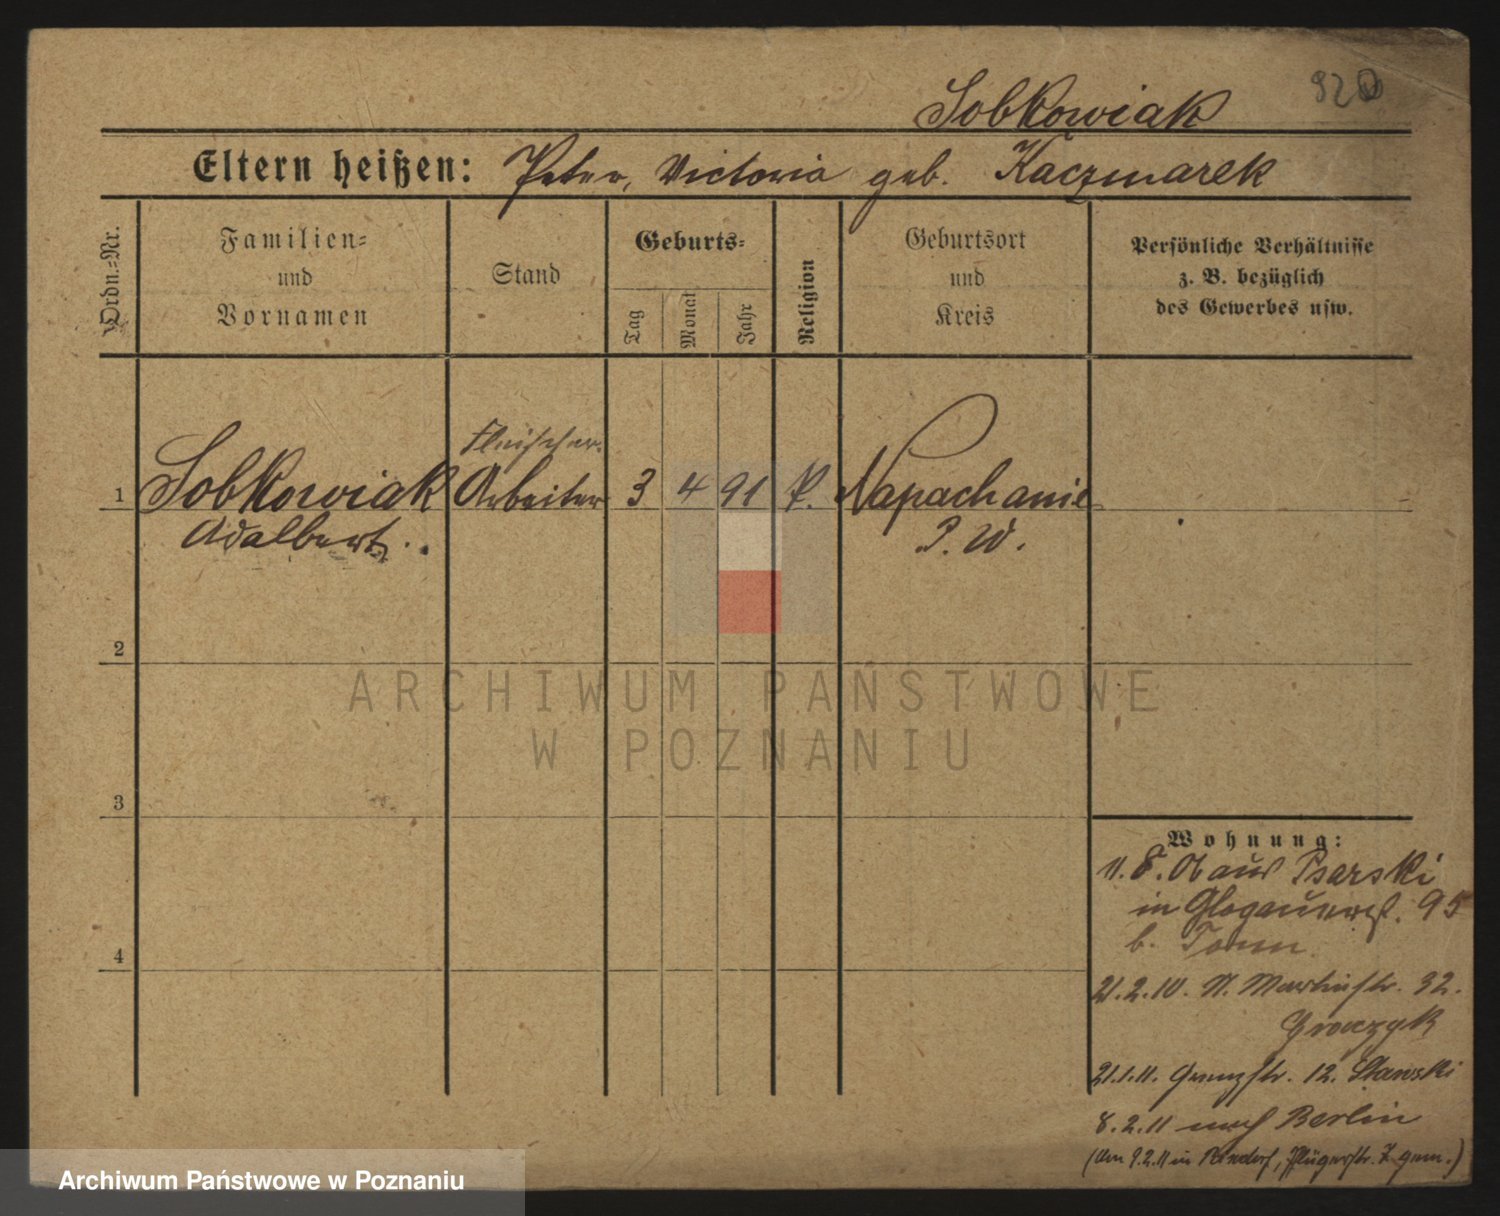 Sobkowiak 920
Eltern heißen: Peter, Victoria geb. Kaczmarek
Ordn.=Nr.
Familien=
und
Vornamen
Stand
Geburts=
Tag
Monat
Jahr
Religion
Geburtsort
und
Kreis
Persönliche Verhältnisse
z. B. bezüglich
des Gewerbes usw.
Fleischer.
1 Sobkowiak Arbeiter 3 4 91 k. Napachanie
Adalbert. P. W.
2
3
4
ARCHIWUM PAŃSTWOWE
W POZNANIU
Wohnung:
11.8. Psarski
in Glogauerst. 95
b.
21.2.10. St. Martinstr. 32.
Gronczyk
21.1.11. Grenzstr. 12. Stawski
8.2.11 nach Berlin
(Am 9.2.11 in Rixdorf, Pflügerstr. 7 gem.)
Archiwum Państwowe w Poznaniu